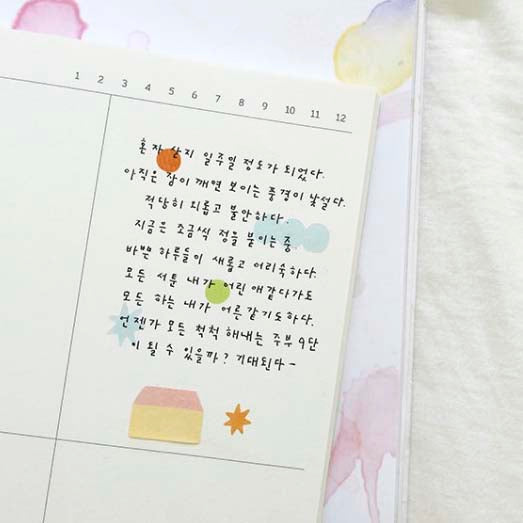 1 2 3 4 5 6 7 8 9 10 11 12
혼자 산지 일주일 정도가 되었다.
아직은 잠이 깨면 보이는 풍경이 낯설다.
적당히 외롭고 불안하다.
지금은 조금씩 정을 붙이는 중.
바쁜 하루들이 새롭고 어리숙하다.
모든 서툰 내가 어린 애같다가도
모든 하는 내가 어른같기도하다.
언젠가 모든 척척 해내는 주부 9단
이 될 수 있을까? 기대된다~